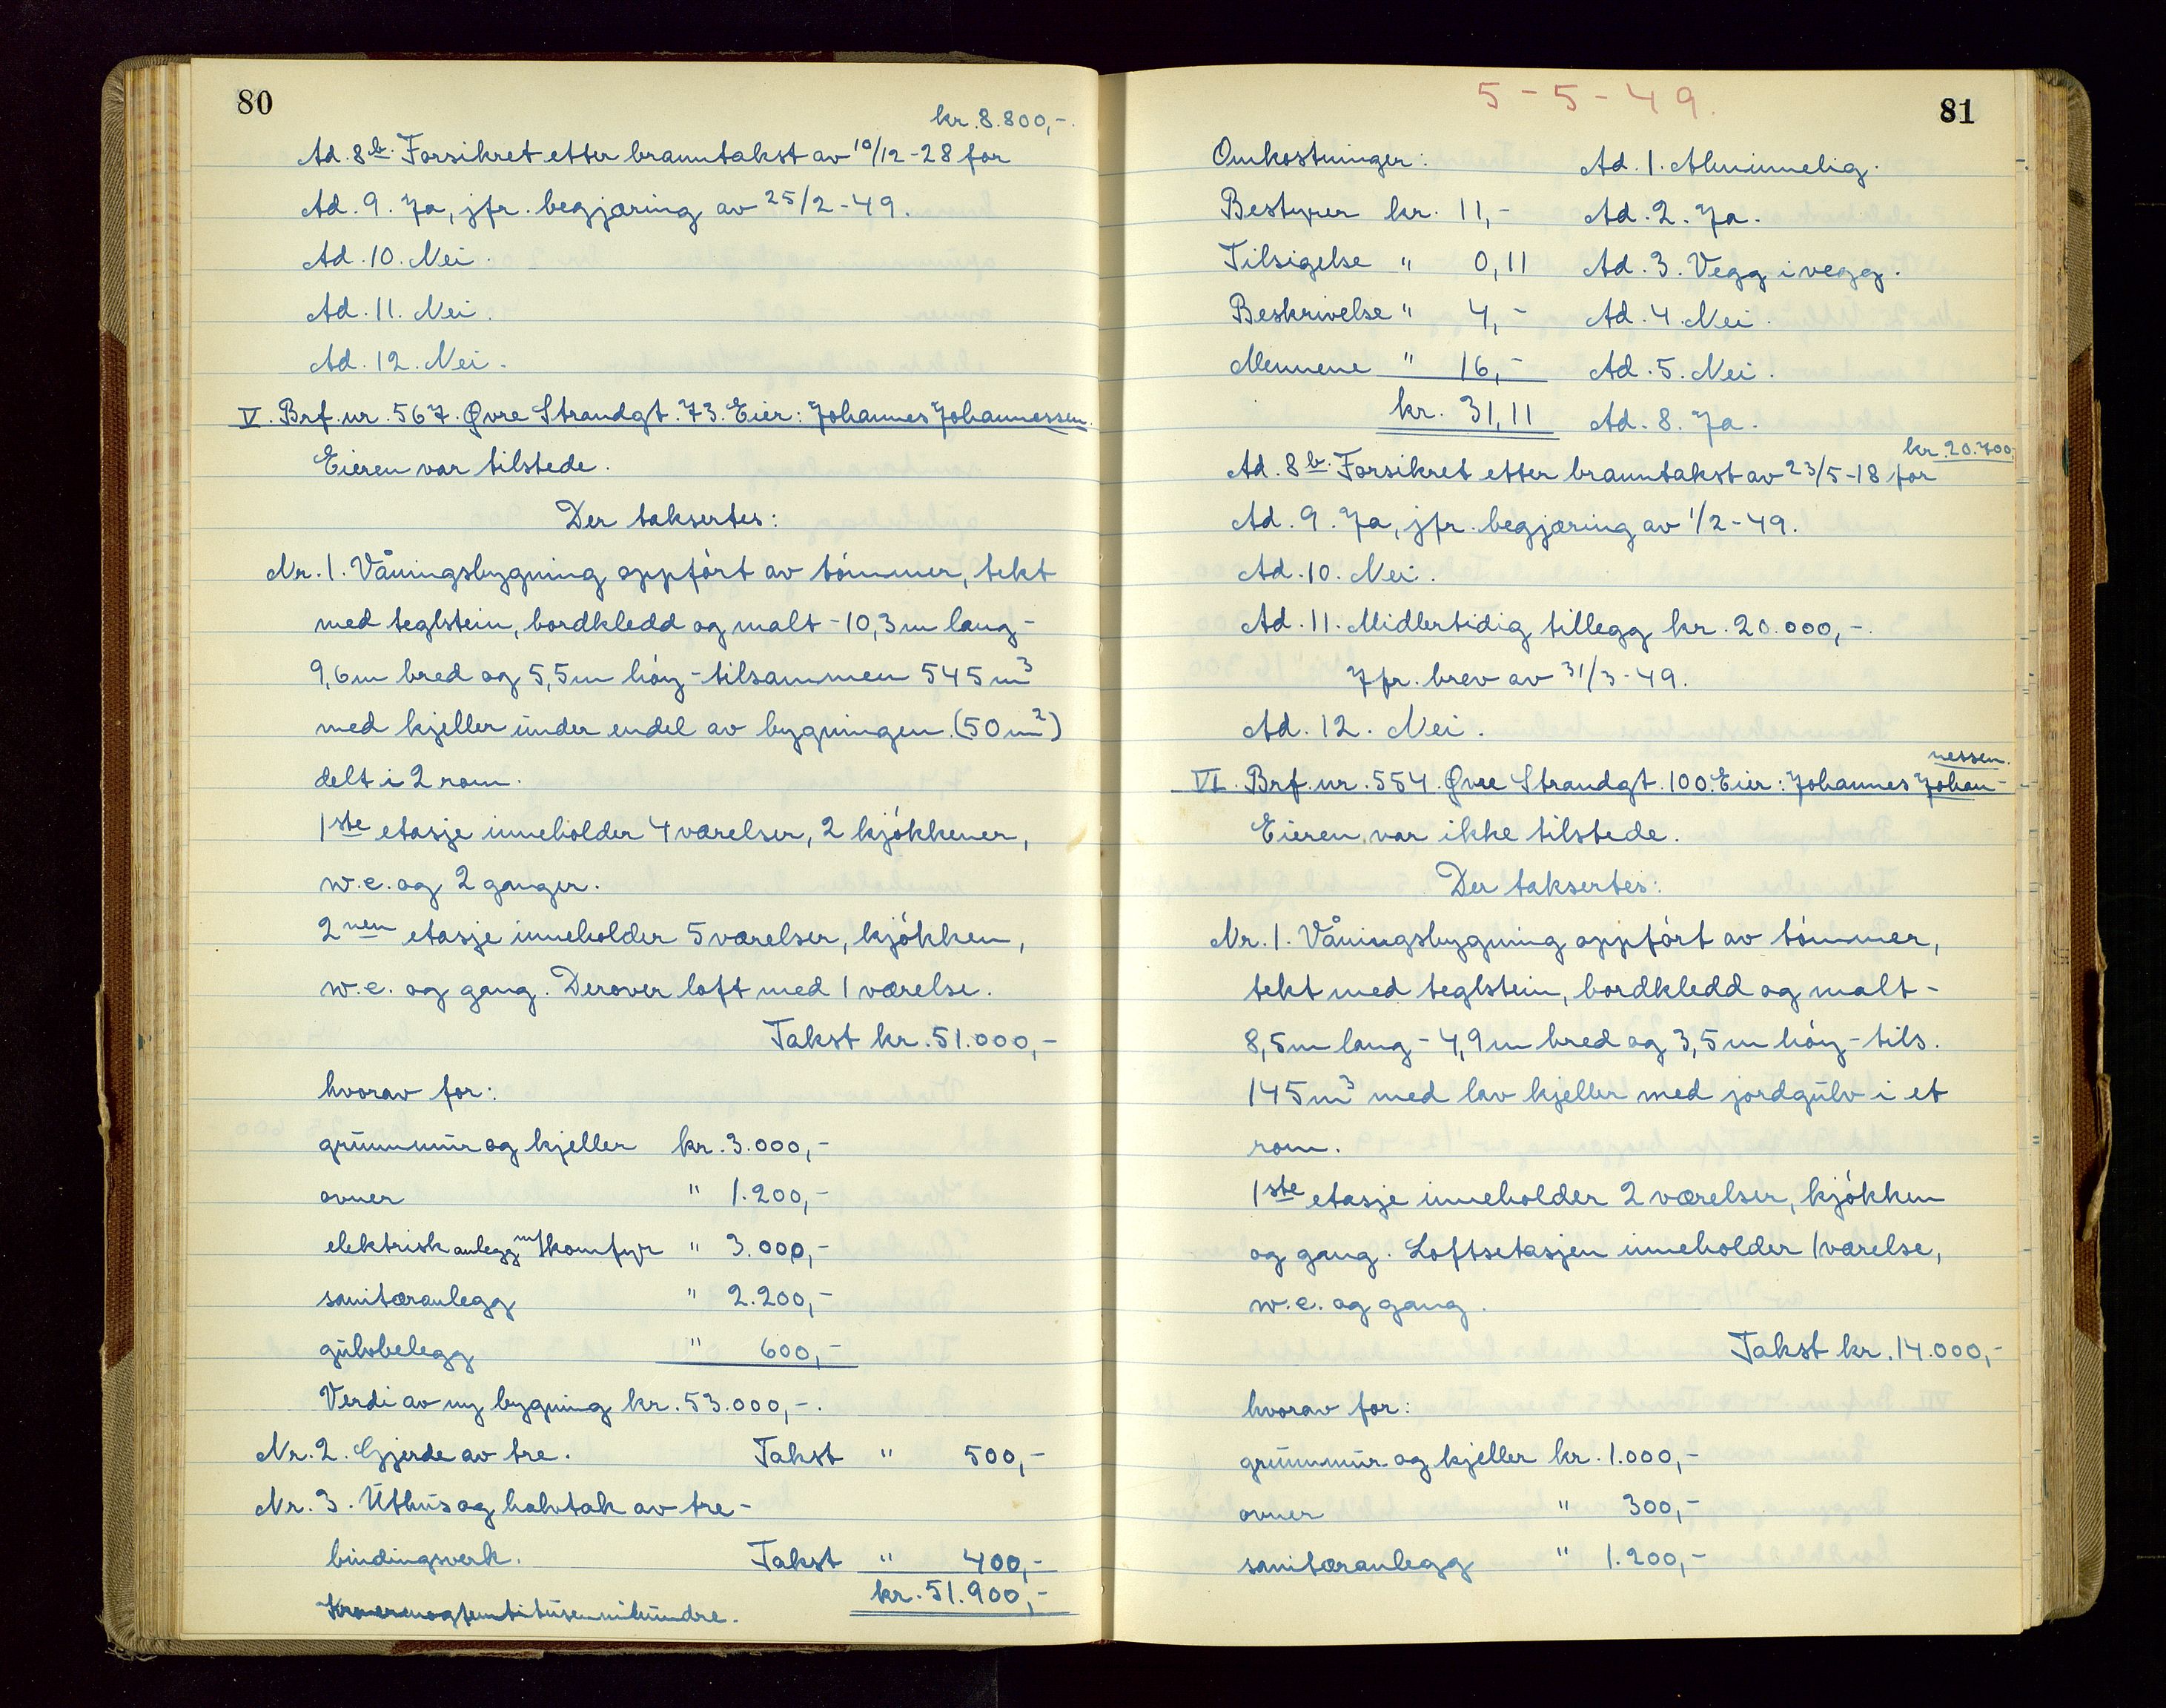 80
kr. 8.800,-.
Ad. 8b. Forsikret etter branntakst av 10/12-28 for
Ad. 9. Ja, jfr. begjæring av 25/2-49.
Ad. 10. Nei.
Ad. 11. Nei.
Ad. 12. Nei.
V. Brf. nr. 567. Øvre Strandgt. 73. Eier: Johannes Johannessen.
Eieren var tilstede.
Der taksertes:
Nr. 1. Våningsbygning oppført av tømmer, tekt
med teglstein, bordkledd og malt - 10,3 m lang -
9,6 m bred og 5,5 m høy - tilsammen 545 m³
med kjeller under endel av bygningen. (50 m²)
delt i 2 rom.
1ste etasje inneholder 4 værelser, 2 kjøkkener,
w.c. og 2 ganger.
2nen etasje inneholder 5 værelser, kjøkken,
w.c. og gang. Derover loft med 1 værelse.
Takst kr. 51.000,-
hvorav for:
grunnmur og kjeller kr. 3.000,-
ovner " 1.200,-
elektrisk anlegg m/komfyr " 3.000,-
sanitæranlegg " 2.200,-
gulvbelegg " 600,-
Verdi av ny bygning kr. 53.000,-.
Nr. 2. Gjerde av tre. Takst " 500,-
Nr. 3. Uthus og halvtak av tre-
bindingsverk. Takst " 400,-
kr. 51.900,-
Kronerenogfemtitusennihundre.
5-5-49.
81
Omkostninger: Ad. 1. Alminnelig.
Bestyrer kr. 11,- Ad. 2. Ja.
Tilsigelse " 0,11 Ad. 3. Vegg i vegg.
Beskrivelse " 4,- Ad. 4. Nei.
Mennene " 16,- Ad. 5. Nei.
kr. 31,11 Ad. 8. Ja.
kr. 20.700,
Ad. 8b. Forsikret etter branntakst av 23/5-18 for
Ad. 9. Ja, jfr. begjæring av 1/2-49.
Ad. 10. Nei.
Ad. 11. Midlertidig tillegg kr. 20.000,-.
Jfr. brev av 31/3-49.
Ad. 12. Nei.
nessen.
VI. Brf. nr. 554. Øvre Strandgt. 100. Eier: Johannes Johan-
Eieren var ikke tilstede.
Der taksertes:
Nr. 1. Våningsbygning oppført av tømmer,
tekt med teglstein, bordkledd og malt -
8,5 m lang - 4,9 m bred og 3,5 m høy - tils.
145 m³ med lav kjeller med jordgulv i et
rom.
1ste etasje inneholder 2 værelser, kjøkken
og gang. Loftsetasjen inneholder 1 værelse,
w.c. og gang.
Takst kr. 14.000,-
hvorav for:
grunnmur og kjeller kr. 1.000,-
ovner " 300,-
sanitæranlegg " 1.200,-